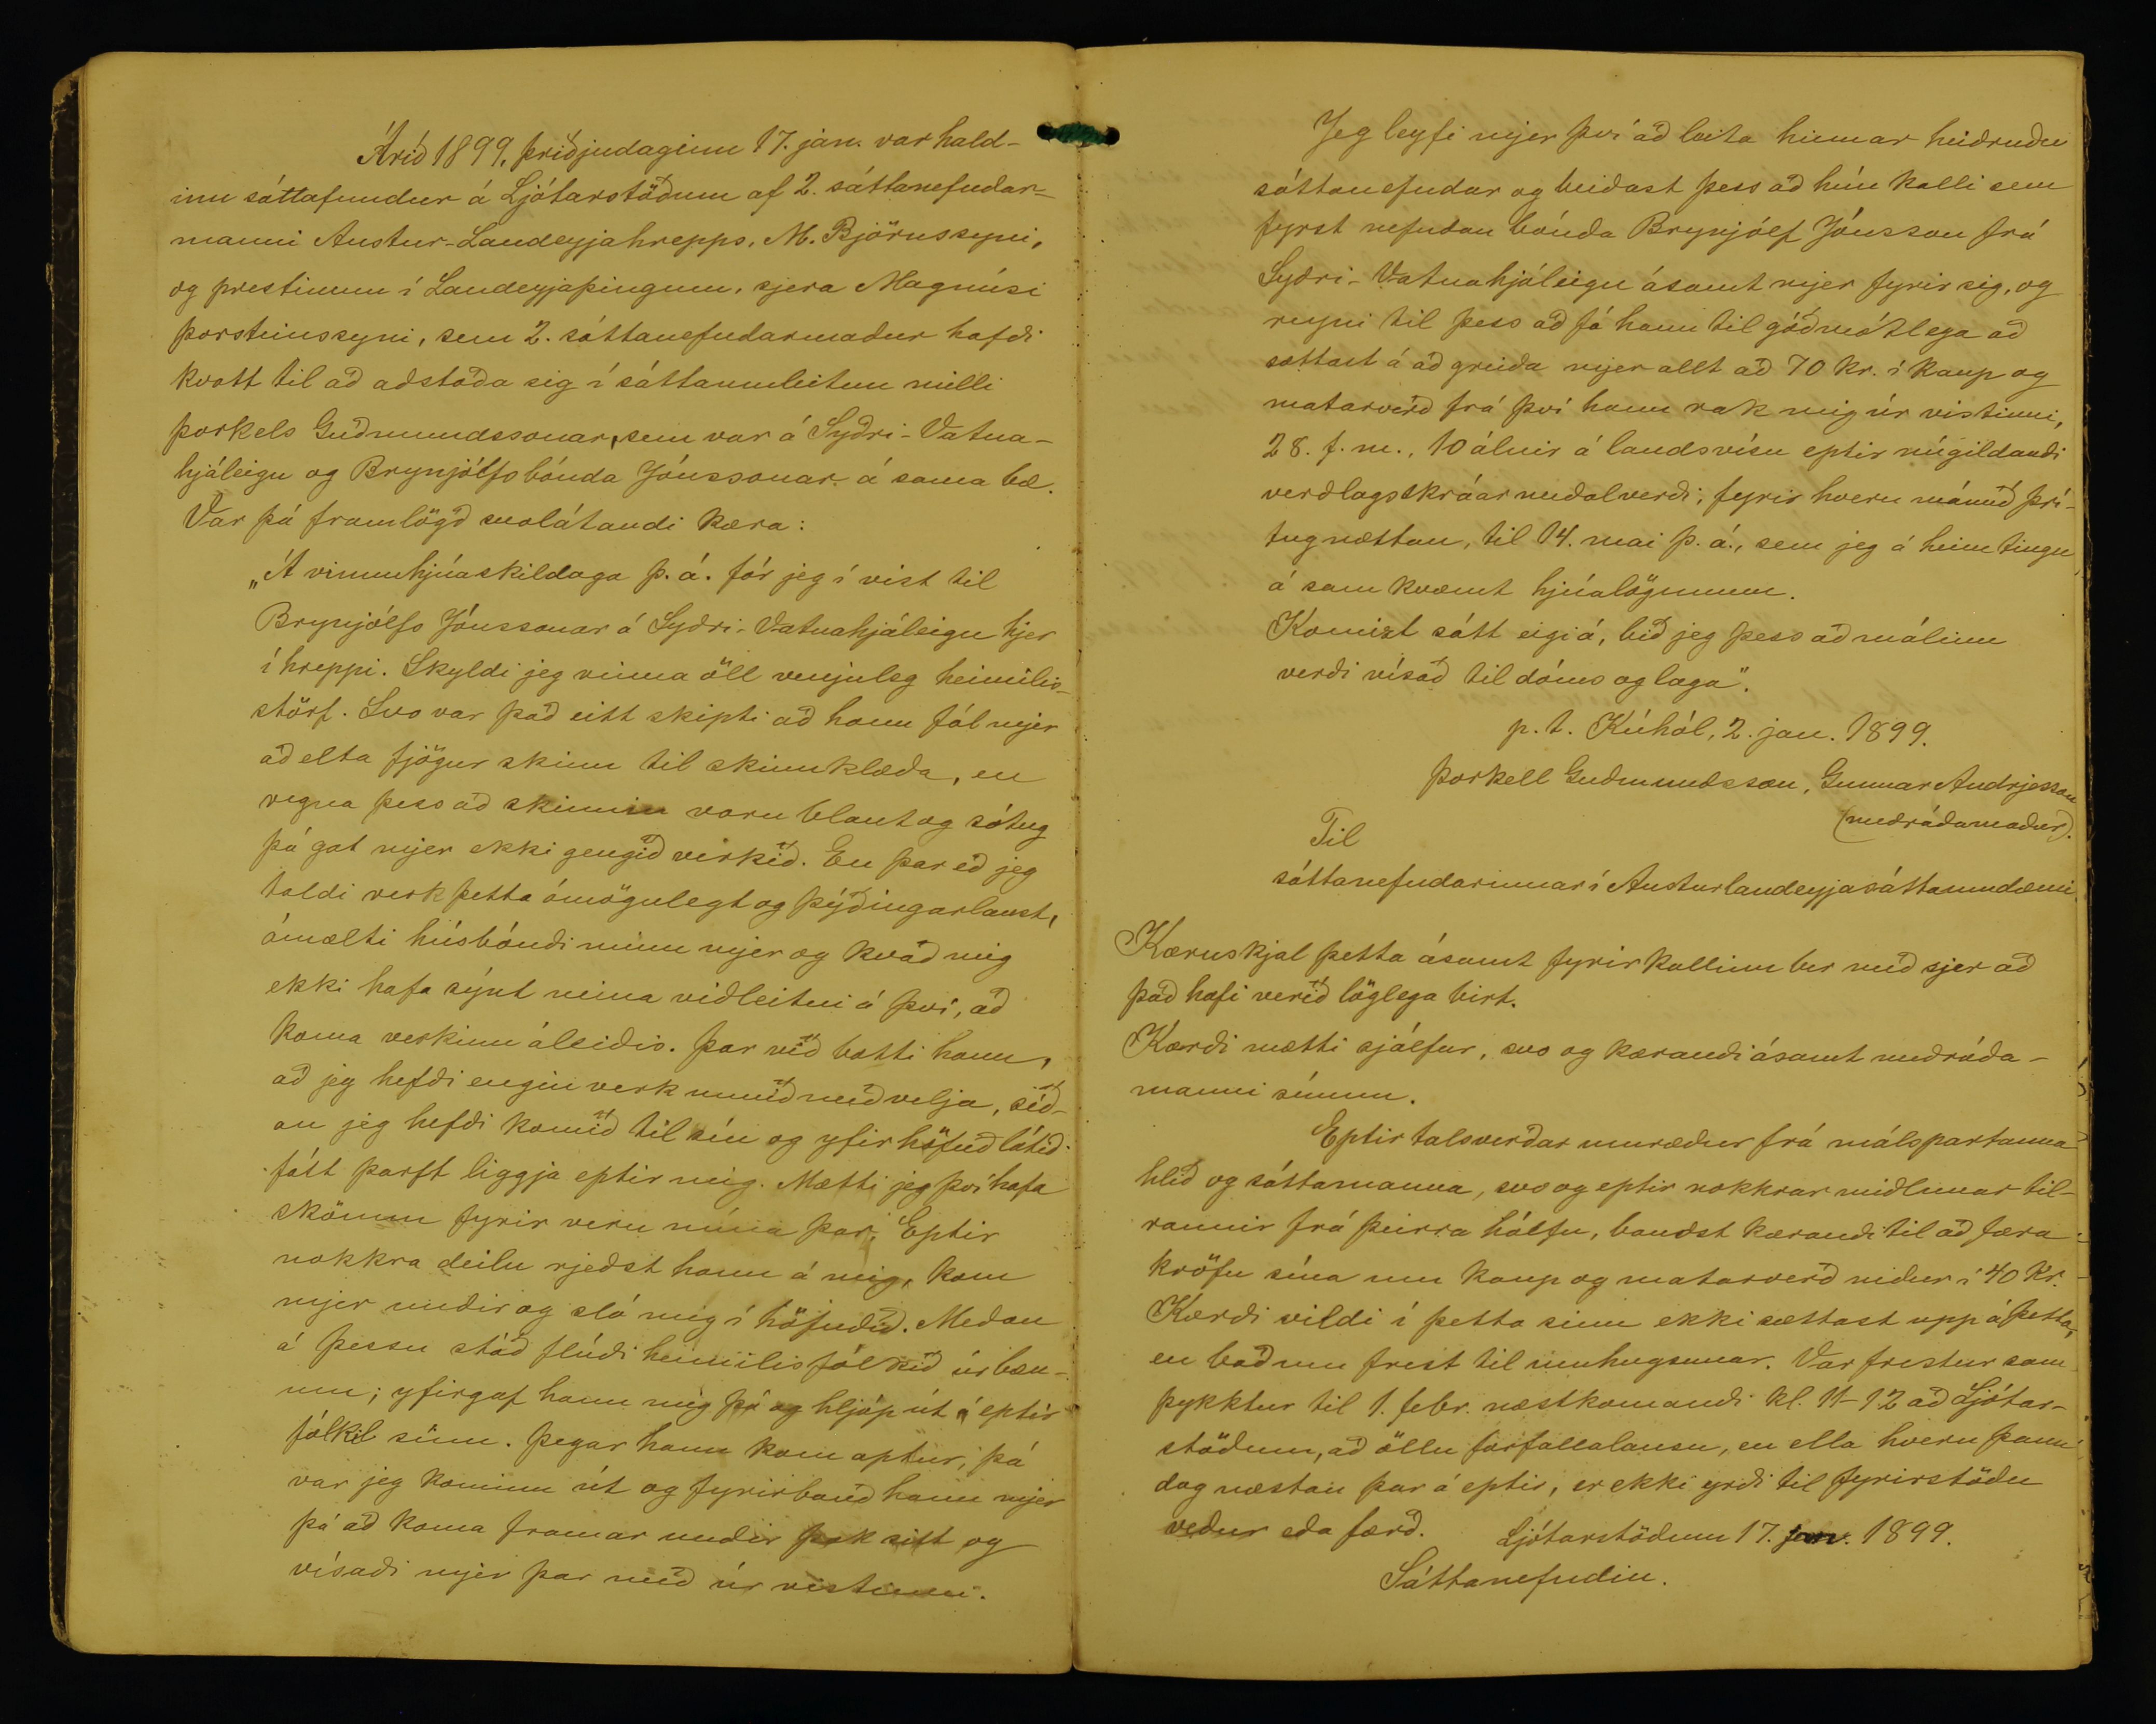 Árið 1899, þriðjudaginn 17. jan. var hald-
inn sáttafundur á Ljótarstöðum af 2. sáttanefndar-
manni Austur-Landeyjahrepps, M. Björnssyni,
og prestinum í Landeyjaþingum, sjera Magnúsi
Þorsteinssyni, sem 2. sáttanefndarmaður hafði
kvatt til að aðstoða sig í sáttaumleitun milli
Þorkels Guðmundssonar, sem var á Syðri-Vatna-
hjáleigu og Brynjólfs bónda Jónssonar á sama bæ.
Var þá framlögð svolátandi kæra:
„Á vinnuhjúaskildaga þ. á. fór jeg í vist til
Brynjólfs Jónssonar á Syðri-Vatnahjáleigu hjer
í hreppi. Skyldi jeg vinna öll venjuleg heimilis-
störf. Svo var það eitt skipti að hann fól mjer
að elta fjögur skinn til skinnklæða, en
vegna þess að skinnin voru blaut og sótug
þá gat mjer ekki gengið verkið. En þar eð jeg
taldi verk þetta ómögulegt og þýðingarlaust,
ámælti húsbóndi minn mjer og kvað mig
ekki hafa sýnt neina viðleitni á því, að
koma verkinu áleiðis. Þar við bætti hann,
að jeg hefði engin verk unnið með vilja, síð-
an jeg hefði komið til sín og yfir höfuð látið
fátt þarft liggja eptir mig. Mætti jeg því hafa
skömm fyrir veru mína þar. Eptir
nokkra deilu rjeðst hann á mig, kom
mjer undir og sló mig í höfuðið. Meðan
á þessu stóð flúði heimilisfólkið úr bæn-
um; yfirgaf hann mig þá og hljóp út á eptir
fólki sínu. Þegar hann kom aptur, þá
var jeg kominn út og fyrirbauð hann mjer
þá að koma framar undir þak sitt og
vísaði mjer þar með úr vistinni.
Jeg leyfi mjer því að leita hinnar heiðruðu
sáttanefndar og beiðast þess að hún kalli sem
fyrst nefndan bónda Brynjólf Jónsson frá
Syðri-Vatnahjáleigu ásamt mjer fyrir sig, og
reyni til þess að fá hann til góðmótlega að
sættast á að greiða mjer allt að 70 kr. í kaup og
matarverð frá því hann rak mig úr vistinni,
28. f. m., 10 álnir á landsvísu eptir núgildandi
verðlagsskráarmeðalverði, fyrir hvern mánuð þrí-
tugnættan, til 14. mai þ. á., sem jeg á heimtingu
á samkvæmt hjúalögunum.
Komizt sátt eigi á, bið jeg þess að málinu
verði vísað til dóms og laga".
p. t. Kúhól, 2. jan. 1899.
Þorkell Guðmundsson, Gunnar Andrjesson
(meðráðamaður).
Til
sáttanefndarinnar í Austurlandeyjasáttaumdæmi.
Kæruskjal þetta ásamt fyrirkallinu ber með sjer að
það hafi verið löglega birt.
Kærði mætti sjálfur, svo og kærandi ásamt meðráða-
manni sínum.
Eptir talsverðar umræður frá málspartanna
hlið og sáttamanna, svo og eptir nokkrar miðlunar til-
raunir frá þeirra hálfu, bauðst kærandi til að færa
kröfu sína um kaup og matarverð niður í 40 kr.
Kærði vildi í þetta sinn ekki sættast upp á þetta,
en bað um frest til umhugsunar. Var frestur sam-
þykktur til 1. febr. næstkomandi kl. 11-12 að Ljótar-
stöðum, að öllu forfallalausu, en ella hvern þann
dag næstan þar á eptir, er ekki yrði til fyrirstöðu
veður eða færð. Ljótarstöðum 17. jan. 1899.
Sáttanefndin.